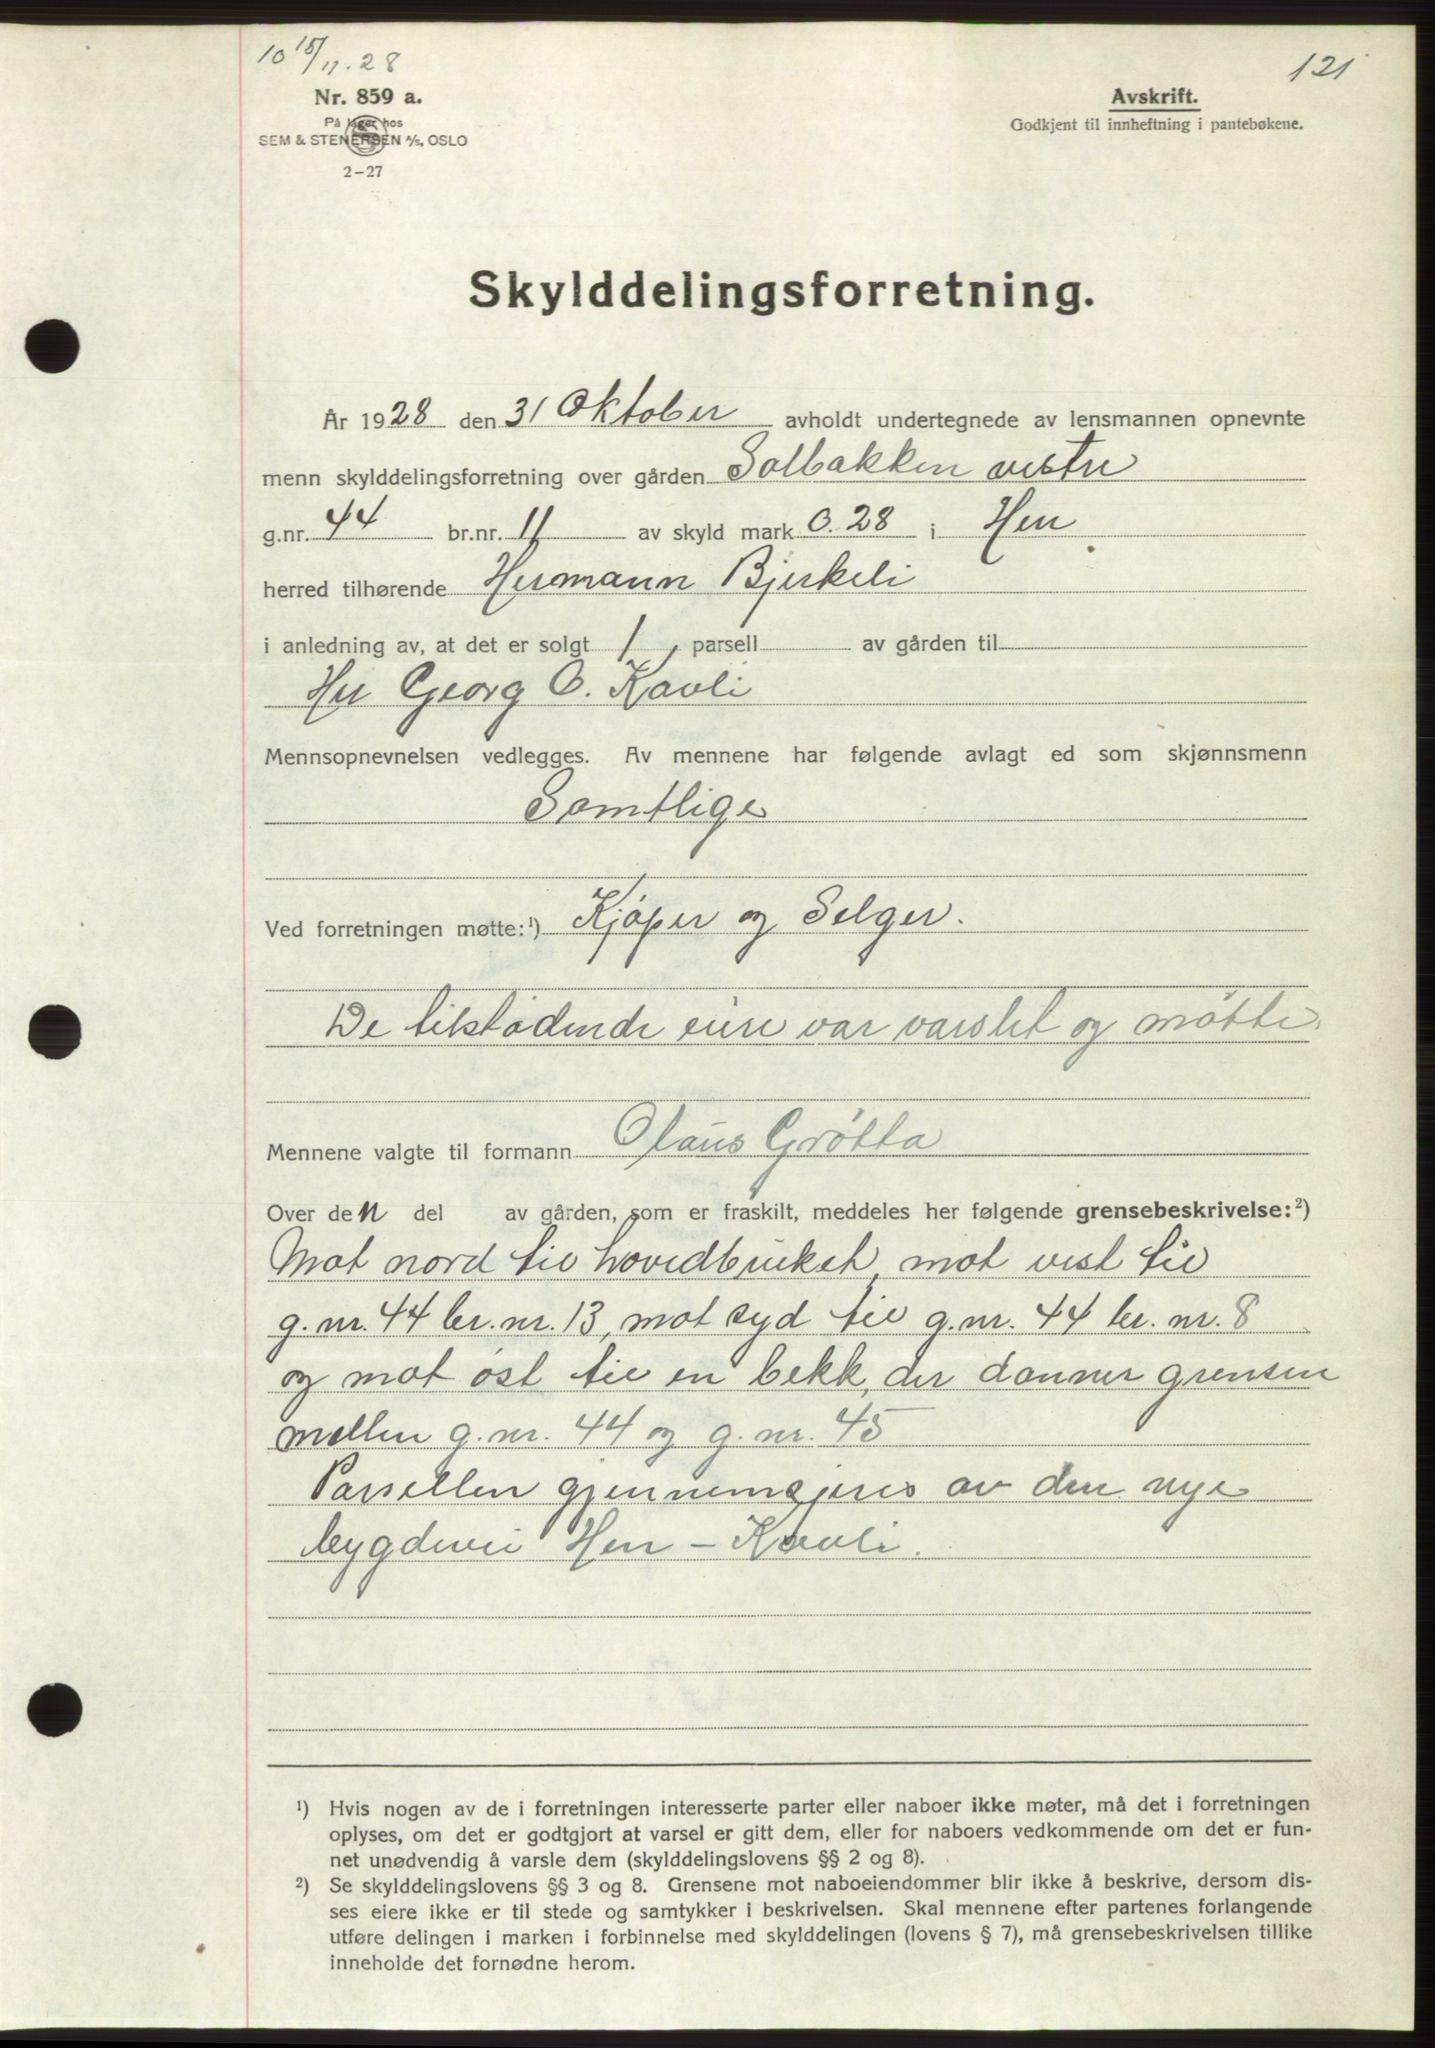 10 15/11-28
121
Nr. 859 a.
På lager hos
SEM & STENERSEN A/S, OSLO
2-27
Avskrift.
Godkjent til innheftning i pantebøkene.
Skylddelingsforretning.
År 1928 den 31 Oktober avholdt undertegnede av lensmannen opnevnte
menn skylddelingsforretning over gården Solbakken vestre
g.nr. 44 br.nr. 11 av skyld mark 0.28 i Hen
herred tilhørende Hermann Bjerkeli
i anledning av, at det er solgt 1 parsell av gården til
Hr Georg O. Kavli
Mennsopnevnelsen vedlegges. Av mennene har følgende avlagt ed som skjønnsmenn
Samtlige
Ved forretningen møtte:¹) Kjøper og Selger.
De tilstødende eiere var varslet og møtte.
Mennene valgte til formann Olaus Grøtta
Over den del av gården, som er fraskilt, meddeles her følgende grensebeskrivelse:²)
Mot nord til hovedbruket, mot vest til
g.nr. 44 br.nr. 13, mot syd til g.nr. 44 br. nr. 8
og mot øst til en bekk, der danner grensen
mellen g.nr. 44 og g.nr. 45
Parsellen gjennemskjæres av den nye
bygdevei Hen - Kavli.
¹) Hvis nogen av de i forretningen interesserte parter eller naboer ikke møter, må det i forretningen
oplyses, om det er godtgjort at varsel er gitt dem, eller for naboers vedkommende om det er fun-
net unødvendig å varsle dem (skylddelingslovens §§ 2 og 8).
²) Se skylddelingslovens §§ 3 og 8. Grensene mot naboeiendommer blir ikke å beskrive, dersom dis-
ses eiere ikke er til stede og samtykker i beskrivelsen. Skal mennene efter partenes forlangende
utføre delingen i marken i forbinnelse med skylddelingen (lovens § 7), må grensebeskrivelsen tillike
inneholde det fornødne herom.